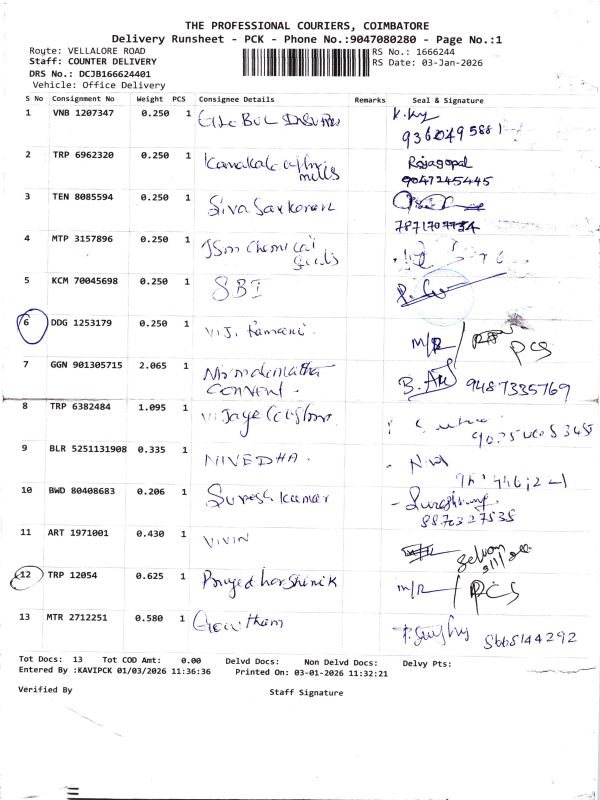 THE PROFESSIONAL COURIERS, COIMBATORE
Delivery Runsheet - PCK - Phone No.:9047080280 - Page No.:1
Route: VELLALORE ROAD
RS No.: 1666244
Staff: COUNTER DELIVERY
RS Date: 03-Jan-2026
DRS No.: DCJB166624401
Vehicle: Office Delivery
S No Consignment No Weight PCS Consignee Details Remarks Seal & Signature
1 VNB 1207347 0.250 1
2 TRP 6962320 0.250 1 mills Rajagopal
9047245445
3 TEN 8085594 0.250 1 Siva Sankaran
7871707734
4 MTP 3157896 0.250 1 JSM Chemical
5 KCM 70045698 0.250 1 SBI
6 DDG 1253179 0.250 1 V.J. m/R / PCS
7 GGN 901305715 2.065 1 Convent. 9487335769
8 TRP 6382484 1.095 1
9 BLR 5251131908 0.335 1 NIVEDHA.
10 BWD 80408683 0.206 1 Suresh kumar
8870327535
11 ART 1971001 0.430 1 VIVIN
12 TRP 12054 0.625 1 m/R / PCS
13 MTR 2712251 0.580 1 Gowtham 5665144292
Tot Docs: 13 Tot COD Amt: 0.00 Delvd Docs: Non Delvd Docs: Delvy Pts:
Entered By :KAVIPCK 01/03/2026 11:36:36 Printed On: 03-01-2026 11:32:21
Verified By Staff Signature